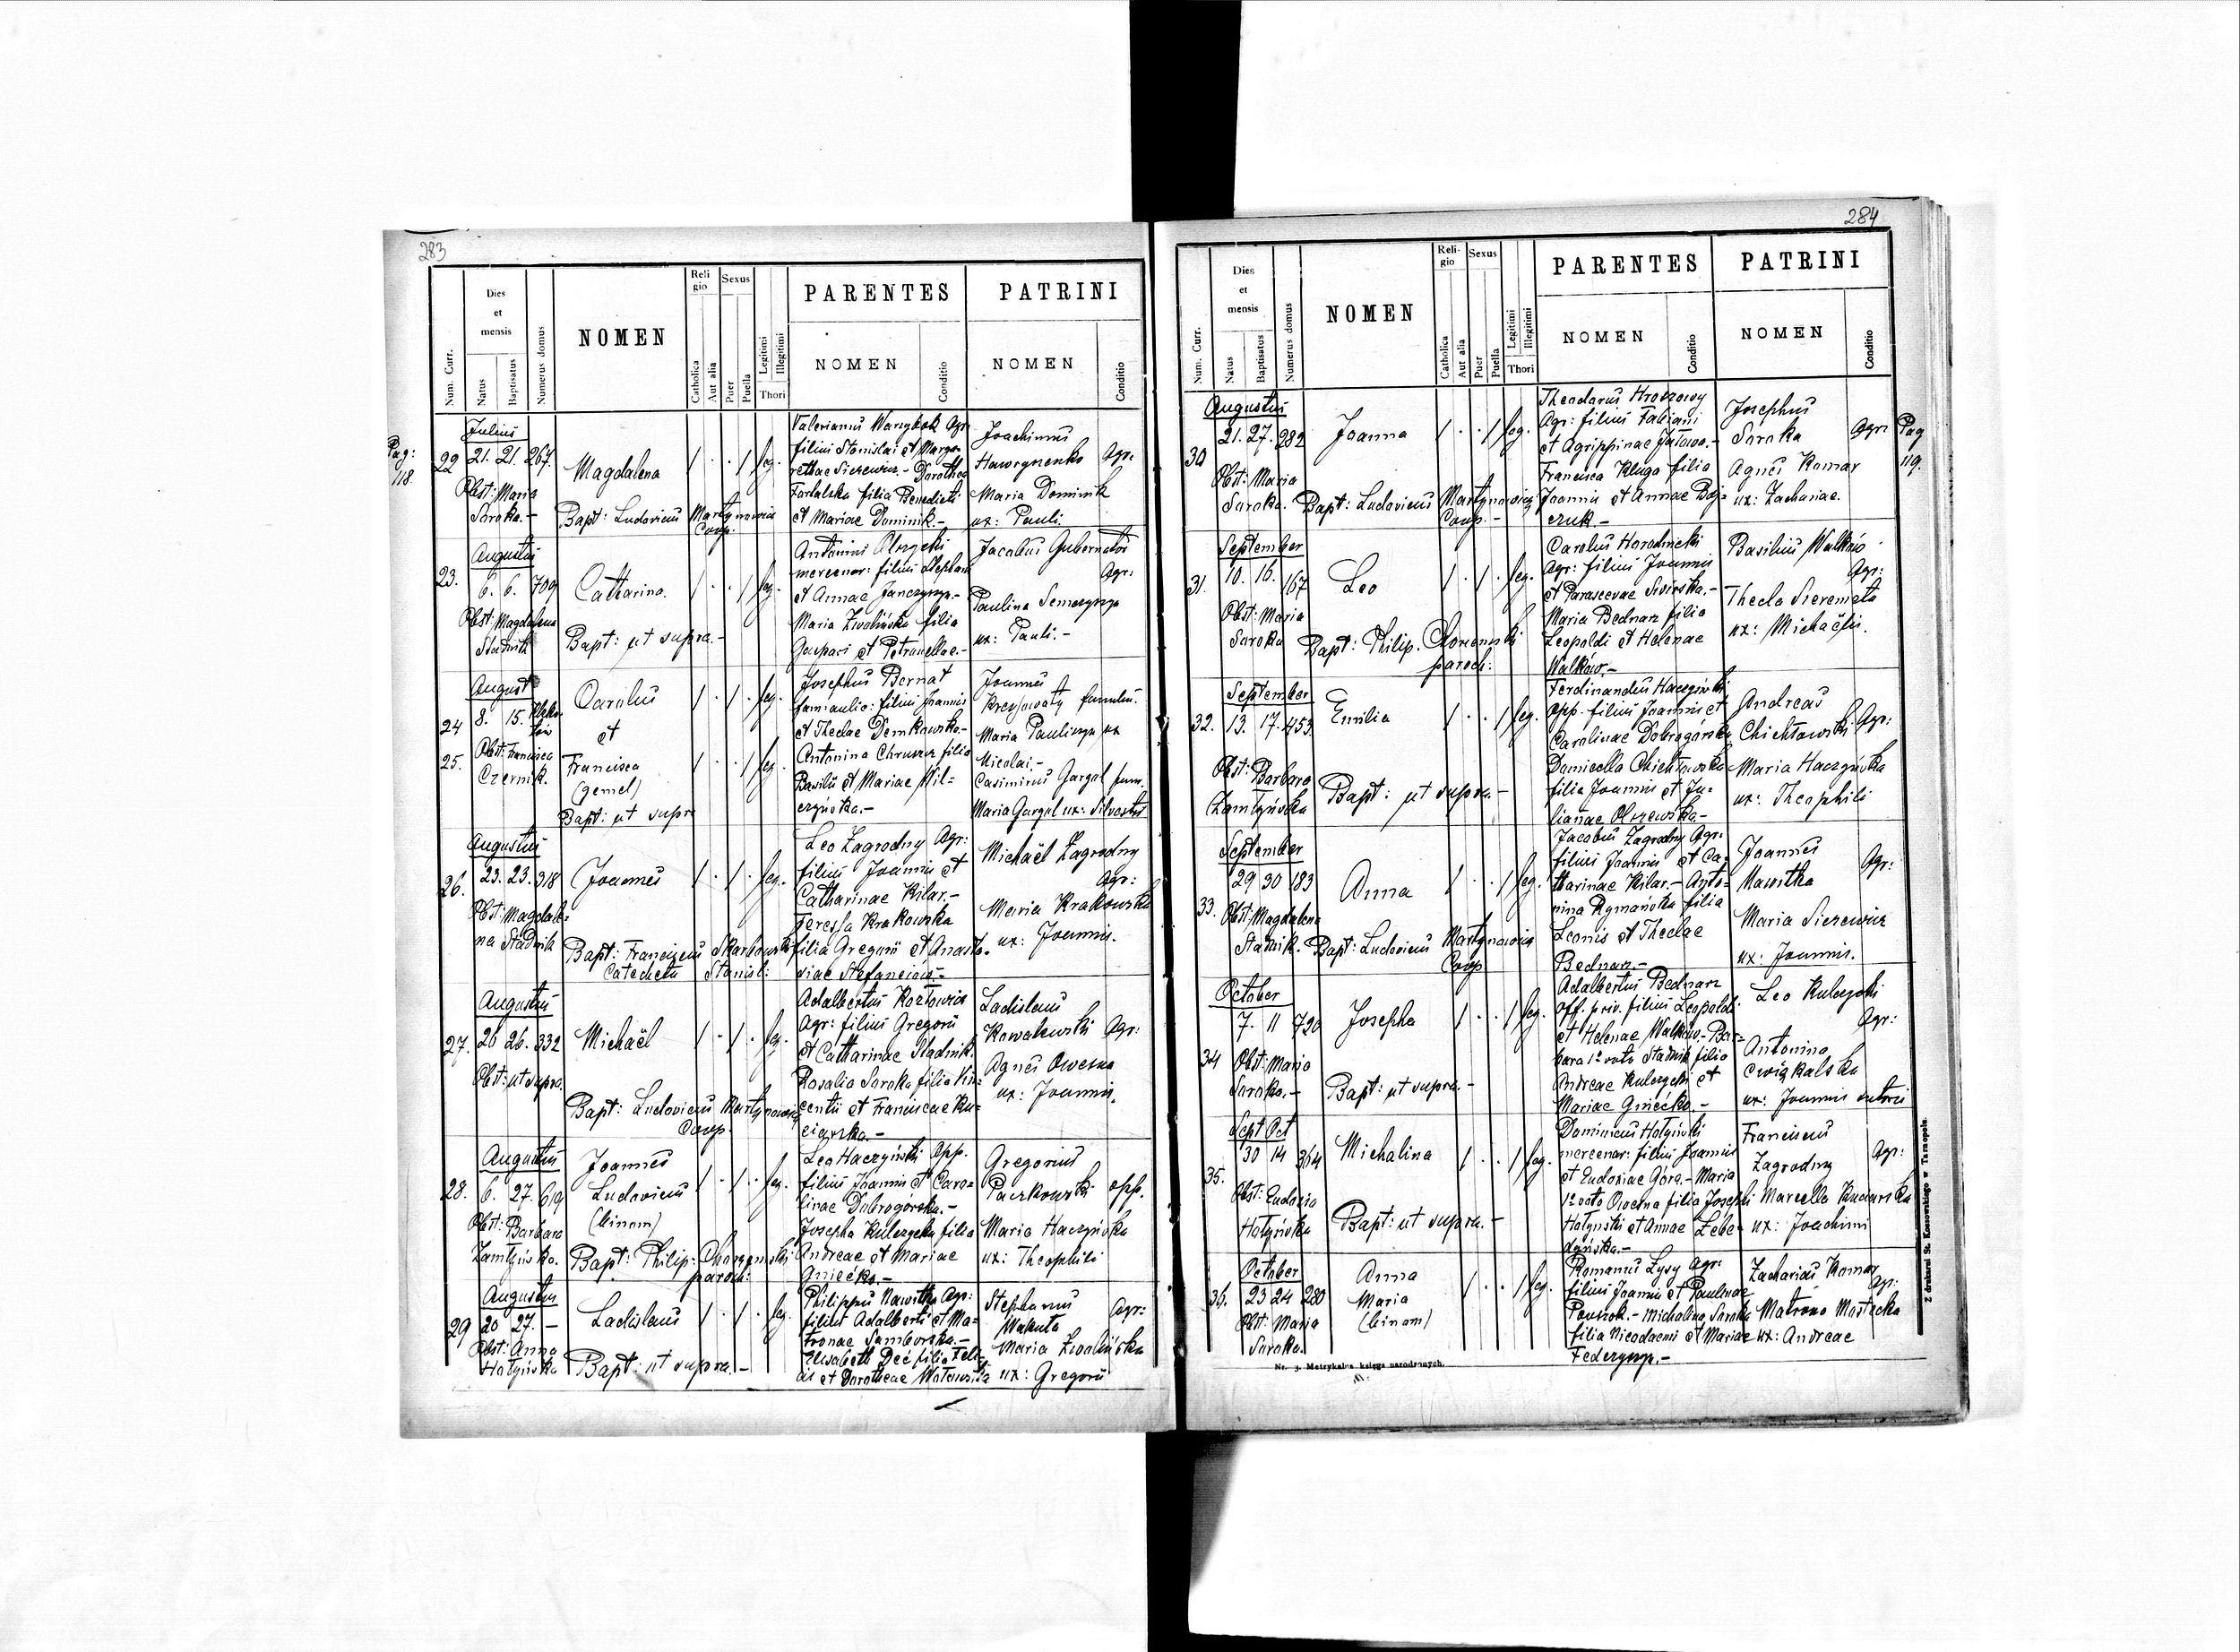 283
Num. Curr.
Dies
et
mensis
Natus
Baptisatus
Numerus domus
NOMEN
Reli
gio
Catholica
Aut alia
Sexus
Puer
Puella
Legitimi
Illegitimi
Thori
PARENTES
NOMEN
Conditio
PATRINI
NOMEN
Conditio
Pag:
118
22
Julius
21. 21. 267.
Obst: Maria
Soroka.-
Magdalena
Bapt: Ludovicus Martynowicz
Coop.
leg.
Valerianus Warzybok Agr.
filius Stanislai et Marga-
rethae Sierewicz.- Dorothea
filia Benedicti
et Mariae Dominik.-
Joachimus
Hawrynenko Agr:
Maria Dominik
ux: Pauli
23.
Augustus
6. 6. 709
Obst: Magdalena
Stadnik
Catharina.
Bapt: ut supra.-
leg.
Antonius Olszycki
mercenar: filius Stephani
et Annae Janczyszyn.-
Maria Zwolińska filia
Gaspari et Petronellae.-
Jacobus Gubernator
Agr:
Paulina Semczyszyn
ux: Pauli.-
24
25.
August
8. 15.
Obst: Francisca
Czernik.
Carolus
et
Francisca
(gemel)
Bapt: ut supra
leg.
leg.
Josephus Bernat
fam: aulic: filius Joannis
et Theclae Demkowska.-
Antonina Chruszcz filia
Basilii et Mariae Wil=
czyńska.-
Joannes
Kreyowaty famulus.
Maria Pauliszyn ux
Nicolai.-
Casimirus Gargol fam.
Maria Gargol ux: Silvestri
26.
Augustus
23. 23. 318
Obst: Magdale=
na Stadnik
Joannes
Bapt: Franciscus Skarbowski
Catecheta Stanisl:
leg.
Leo Zagrodny Agr:
filius Joannis et
Catharinae Kilar.-
Teressa Krakowska
filia Gregorii et Anasta-
siae Stefanciow.-
Michaël Zagrodny
Agr:
Maria Krakowska
ux: Joannis.
27.
Augustus
26 26. 332
Obst: ut supra.
Michaël
Bapt: Ludovicus Martynowicz
Coop.
leg.
Adalbertus Kozłowicz
Agr: filius Gregorii
et Catharinae Stadnik.
Rosalia Soroka filia Vin=
centii et Franciscae Ku=
ciarska.-
Ladislaus
Kowalewski Agr:
Agnes Owesna
ux: Joannis.
28.
Augustus
6. 27. 619
Obst: Barbara
Zamłyńska.
Joannes
Ludovicus
(binom)
Bapt: Philip: Chorzemski
paroch:
leg.
Leo Haczyński Opp.
filius Joannis et Caro=
linae Dobrogórska.-
Josepha Kulczycka filia
Andreae et Mariae
Gniećko.-
Gregorius
Paczkowski opp.
Maria Haczyńska
ux: Theophili
29
Augustus
20 27. -
Obst: Anna
Hołyńska
Ladislaus
Bapt: ut supra.-
leg.
Philippus Nawitka Agr:
filius Adalberti et Ma=
tronae Samborska.-
Elisabeth Deć filia Feli-
cis et Dorotheae
Stephanus
Makuta Agr:
Maria Zwolińska
ux: Gregorii
284
Num. Curr.
Dies
et
mensis
Natus
Baptisatus
Numerus domus
NOMEN
Reli-
gio
Catholica
Aut alia
Sexus
Puer
Puella
Legitimi
Illegitimi
Thori
PARENTES
NOMEN
Conditio
PATRINI
NOMEN
Conditio
Pag
119.
30
Augustus
21. 27. 282
Obst: Maria
Soroka.
Joanna
Bapt: Ludovicus Martynowicz
Coop.-
leg.
Theodorus Hrozowy
Agr: filius Fabiani
et Agrippinae
Francisca Kluga filia
Joannis et Annae Baj=
czuk.-
Josephus
Soroka Agr:
Agnes Komar
ux: Zachariae.
31.
September
10. 16. 167
Obst: Maria
Soroka
Leo
Bapt: Philip. Chorzemski
paroch:
leg.
Carolus Horodnicki
Agr: filius Joannis
et Parascevae Sivirska.-
Maria Bednarz filia
Leopoldi et Helenae
Walków.-
Basilius Walków
Agr:
Thecla Sieremeta
ux: Michaëlis.
32.
September
13. 17. 453
Obst: Barbara
Zamłyńska
Emilia
Bapt: ut supra.-
leg.
Ferdinandus Haczyński
opp. filius Joannis et
Carolinae Dobrogórska
Daniella Chichłowska
filia Joannis et Ju=
lianae Olszewska.-
Andreas
Chichłowski Agr:
Maria Haczyńska
ux: Theophili
33.
September
29 30 183
Obst: Magdalena
Stadnik.
Anna
Bapt: Ludovicus Martynowicz
Coop
leg.
Jacobus Zagrodny Agr:
filius Joannis et Ca=
tharinae Kilar.- Anto=
nina Rymańska filia
Leonis et Theclae
Bednarz.-
Joannes
Nawitka Agr:
Maria Sierewicz
ux: Joannis.
34
October
7. 11 720
Obst: Maria
Soroka.-
Josepha
Bapt: ut supra.-
leg.
Adalbertus Bednarz
off. priv. filius Leopoldi
et Helenae Walków.- Bar=
bara 1º voto Stadnik filia
Andreae Kulczycki et
Mariae Gniećko.-
Leo Kulczycki
Agr:
Antonina
Cwiąkalska
ux: Joannis sutoris
35.
Sept Oct
30 14 364
Obst: Eudoxia
Hołyńska
Michalina
Bapt: ut supra.-
leg.
Dominicus Hołyński
mercenar: filius Joannis
et Eudoxiae Góra.- Maria
1º voto Owesna filia Josephi
Hołyński et Annae Lebe=
dyńska.-
Franciscus
Zagrodny Agr:
Marcella Kuciarska
ux: Joachimi
36.
October
23 24 280
Obst: Maria
Soroka.
Anna
Maria
(binom)
leg.
Romanus Lysy Agr:
filius Joannis et Paulinae
Pawzok.- Michalina Soroka
filia Nicodaemi et Mariae
Federyszyn.-
Zacharias Komar
Agr:
Matrona Mostecka
ux: Andreae
Nr. 3. Metrykalna księga narodzonych.
Z drukarni St. Kossowskiego w Tarnopolu.